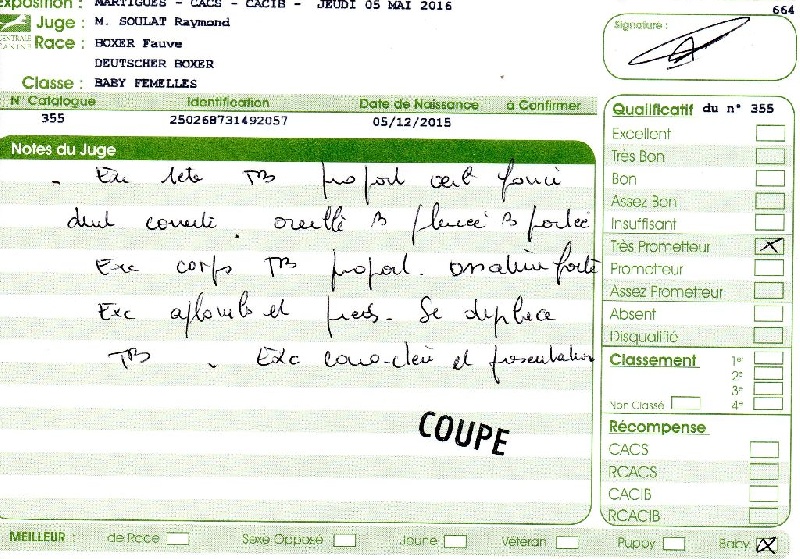 Exposition : MARTIGUES - CACS - CACIB - JEUDI 05 MAI 2016
664
CENTRALE CANINE
Juge : M. SOULAT Raymond
Race : BOXER Fauve
DEUTSCHER BOXER
Classe : BABY FEMELLES
Signature :
N° Catalogue Identification Date de Naissance à Confirmer
355 250268731492057 05/12/2015
Notes du Juge
- Exc tete TB proport oeil foncé
dent correcte. oreille B placée B portée
Exc corps TB proport. ossature forte
Exc aplombs et pieds. Se deplace
TB . Exc caractère et presentation
COUPE
Qualificatif du n° 355
Excellent
Très Bon
Bon
Assez Bon
Insuffisant
Très Prometteur X
Prometteur
Assez Prometteur
Absent
Disqualifié
Classement 1er
2e
3e
Non Classé 4e
Récompense
CACS
RCACS
CACIB
RCACIB
MEILLEUR : de Race Sexe Opposé Jeune Vétéran Puppy Baby X